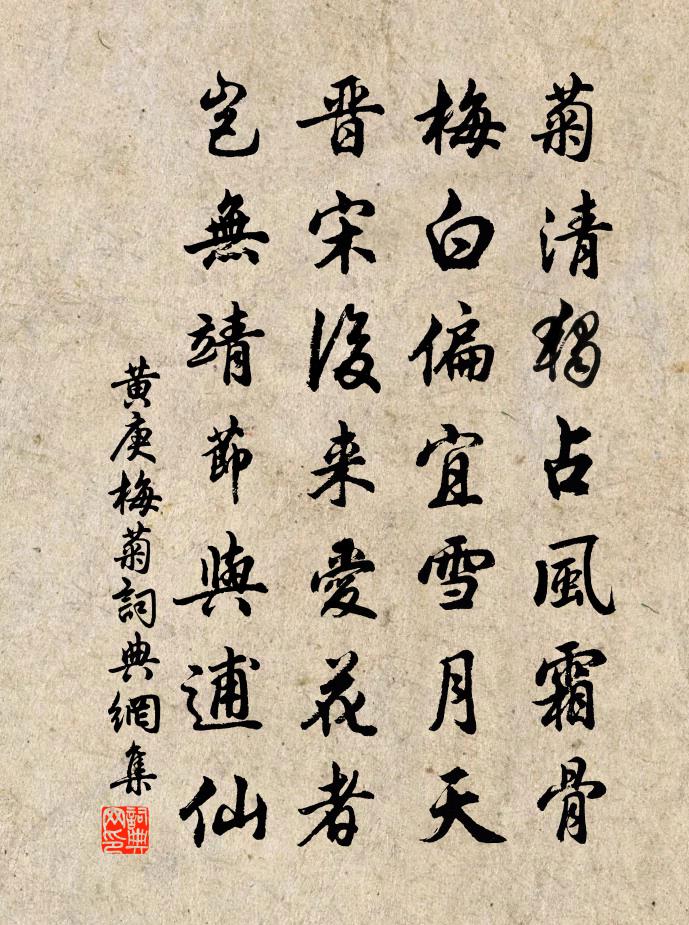 菊清獨占風霜骨
梅白偏宜雪月天
晋宋後来愛花者
豈無靖節與逋仙
黄庚梅菊詞典網集
詞典网印